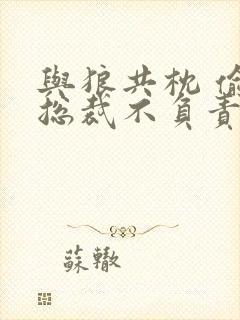 與狼共枕 偷
總裁不負責
蘇轍